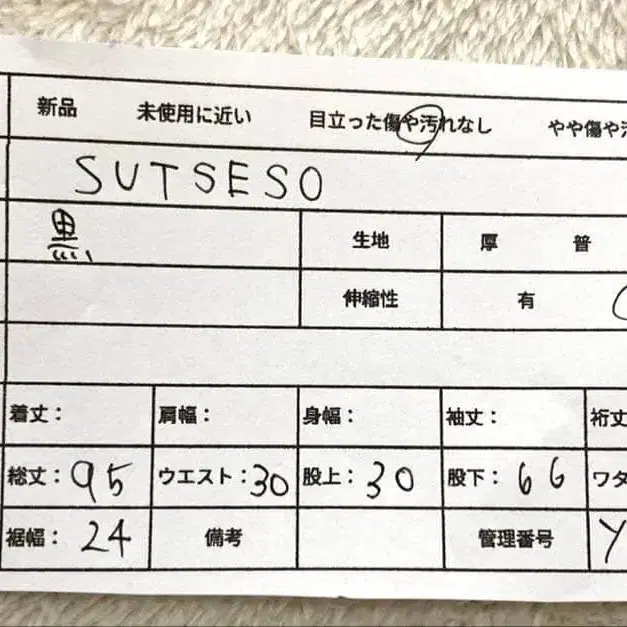 新品 未使用に近い 目立った傷や汚れなし やや傷や汚
SUTSESO
黒 生地 厚 普
伸縮性 有
着丈： 肩幅： 身幅： 袖丈： 裄丈
総丈：95 ウエスト：30 股上：30 股下：66 ワタ
裾幅：24 備考 管理番号 Y